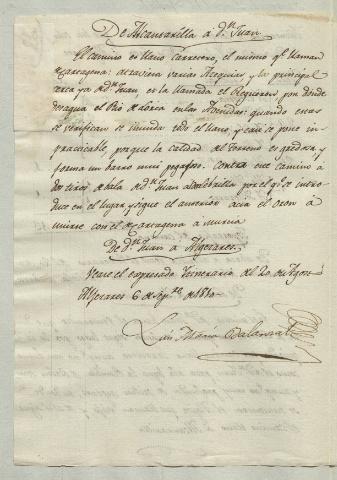 De Alcantarilla a Dn. Juan
El camino es llano carretero, el mismo qe. llaman
de Cartagena: atraviesa varias Acequias, y la principal
cerca ya de Dn. Juan, es la llamada el Regueron por donde
desagua el Rio de Lorca en las Avenidas: quando estas
se verifican se inunda todo el llano, y casi se pone im-
practicable, porque la calidad del terreno es gredosa, y
forma un barro mui pegajoso. Contra ese camino à
dos tiros de bala de Dn. Juan por el qe. se intro-
duce en el lugar, y sigue el anterior acia el oeste à
unirse con el de Cartagena à murcia
De Dn. Juan a Algezares.
Vease el expresado Itinerario del 20 de Agosto
Algezares 6 de Sepre. de 1810
Luis Maria Balanzat